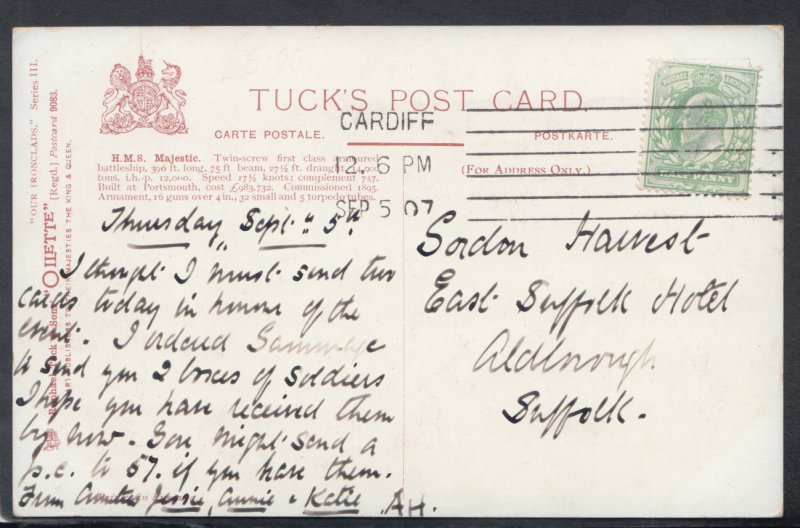 TUCK'S POST CARD.
CARTE POSTALE.
POSTKARTE.
(FOR ADDRESS ONLY.)
CARDIFF
12. 6 PM
SEP 5 07
H.M.S. Majestic. Twin-screw first class armoured
battleship, 390 ft. long, 75 ft beam, 27½ ft. draught,
tons, i.h.-p. 12,000. Speed 17½ knots: complement 757.
Built at Portsmouth, cost £983,732. Commissioned 1895.
Armament, 16 guns over 4 in., 32 small and 5 torpedo tubes.
"OUR IRONCLADS." Series III.
"OILETTE" [Regd.] Postcard 9083.
Raphael Tuck & Sons'
ART PUBLISHERS TO THEIR MAJESTIES THE KING & QUEEN.
POSTAGE
PENNY
Thursday Sept: 5th
I thought I must send two
cards today in honour of the
event. I ordered Gammage
to send you 2 boxes of soldiers
I hope you have received them
by now. You might send a
p.c. to 57. if you have them.
From Aunties Jessie, Annie & Katie
AH.
Gordon Harvest
East Suffolk Hotel
Aldborough
Suffolk.